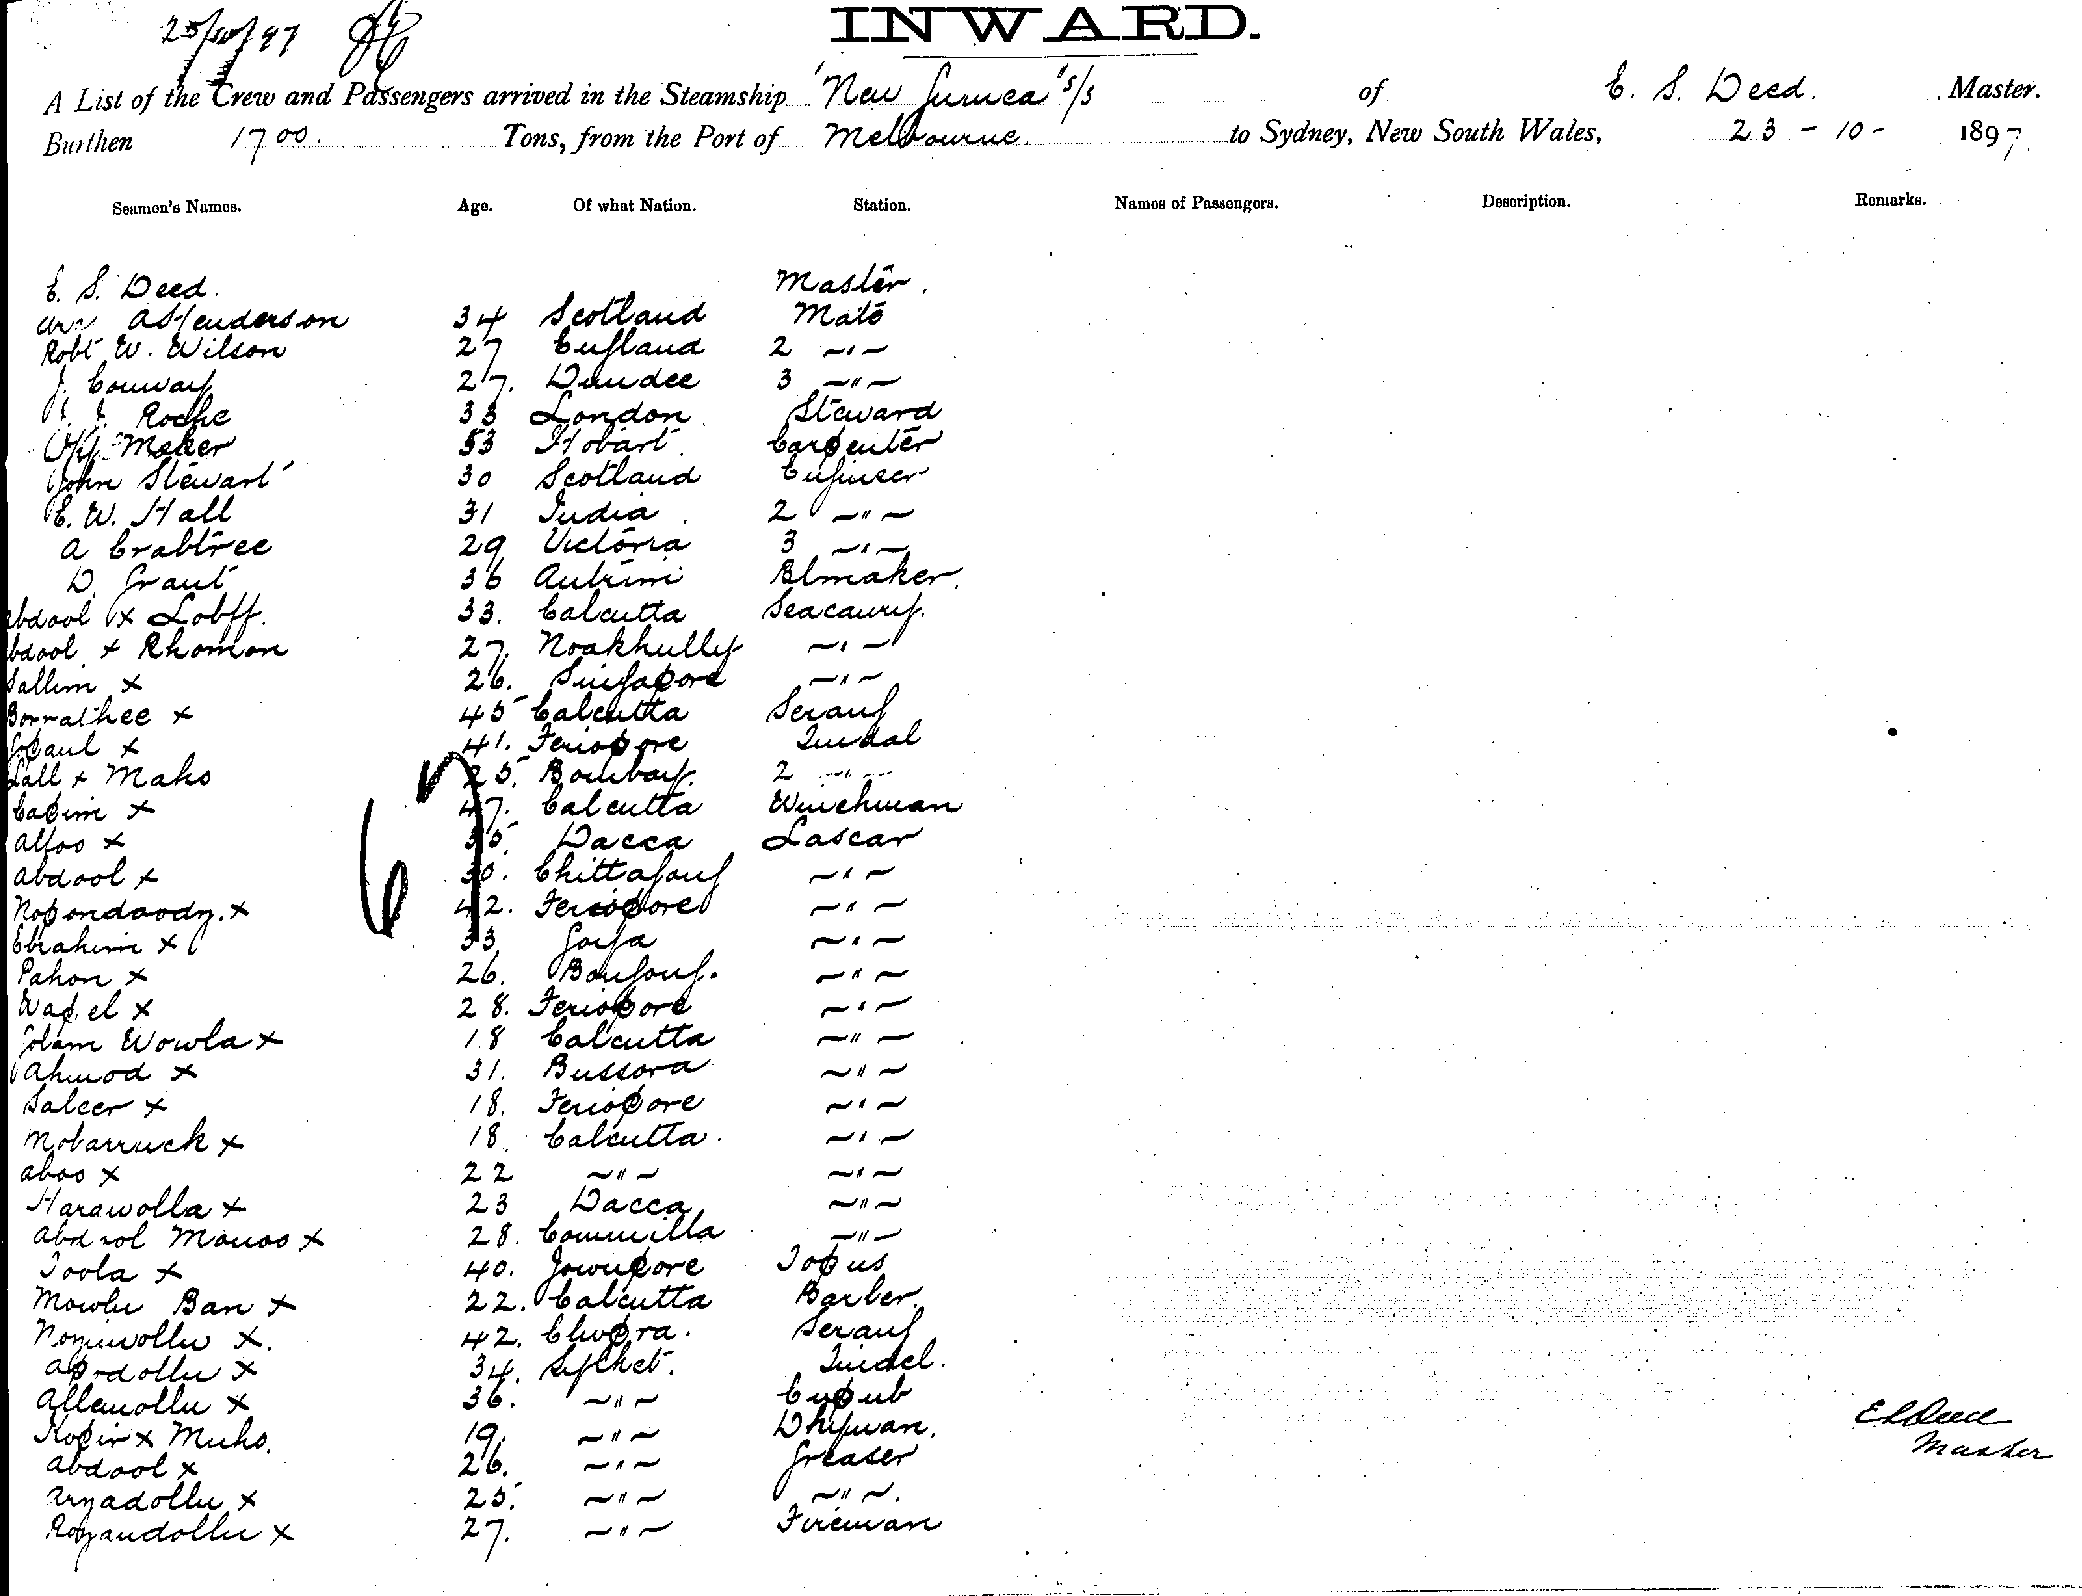 25/10/97
INWARD.
A List of the Crew and Passengers arrived in the Steamship "New Guinea" s/s of E. S. Deed. Master.
Burthen 1700. Tons, from the Port of Melbourne. to Sydney, New South Wales, 23 - 10 - 1897.
Seamen's Names. Age. Of what Nation. Station. Names of Passengers. Description. Remarks.
E. S. Deed. Master.
A Henderson 34 Scotland Mate
Robt W. Wilson 27 England 2 -"-
J. Conway 27. Dundee 3 -"-
J. Roche 33 London Steward
Meker 53 Hobart Carpenter
John Stewart 30 Scotland Engineer
E. W. Hall 31 India 2 -"-
A Crabtree 29 Victoria 3 -"-
D. Grant 36 Antrim Blmaker.
Abdool x Lobff. 33. Calcutta Seacunny.
Abdool x Rhomon 27. Noakhully -"-
Sallim x 26. Singapore -"-
Borrathee x 45 Calcutta Serang
Gopaul x 41. Feriopore Tindal
Lall x Maho 25. Bombay. 2 -"-
Casim x 47. Calcutta Winchman
Alfoo x 35. Dacca Lascar
Abdool x 30. Chittagong -"-
Nopondoody. x 42. Feriopore -"-
Ebrahim x 33 Goya -"-
Pahon x 26. Bongong. -"-
Wapel x 28. Feriopore -"-
Golam Wowla x 18 Calcutta -"-
Ahmod x 31. Bussora -"-
Saleer x 18. Feriopore -"-
Mobarruck x 18. Calcutta. -"-
Aboo x 22 -"- -"-
Harawolla x 23 Dacca -"-
Abdool Monoo x 28. Commilla -"-
Toola x 40. Jownpore Topus
Mowlu Ban x 22. Calcutta Barber
Nozimollu x. 42. Chupra. Serang
Abdollu x 34. Sylhet. Tindel.
Allemollu x 36. -"- Cupub
Kopir x Muho. 19. -"- Dkyman.
Abdool x 26. -"- Greaser
Aryadollu x 25. -"- -"-.
Rozandollu x 27. -"- Fireman
67
E S Deed
Master